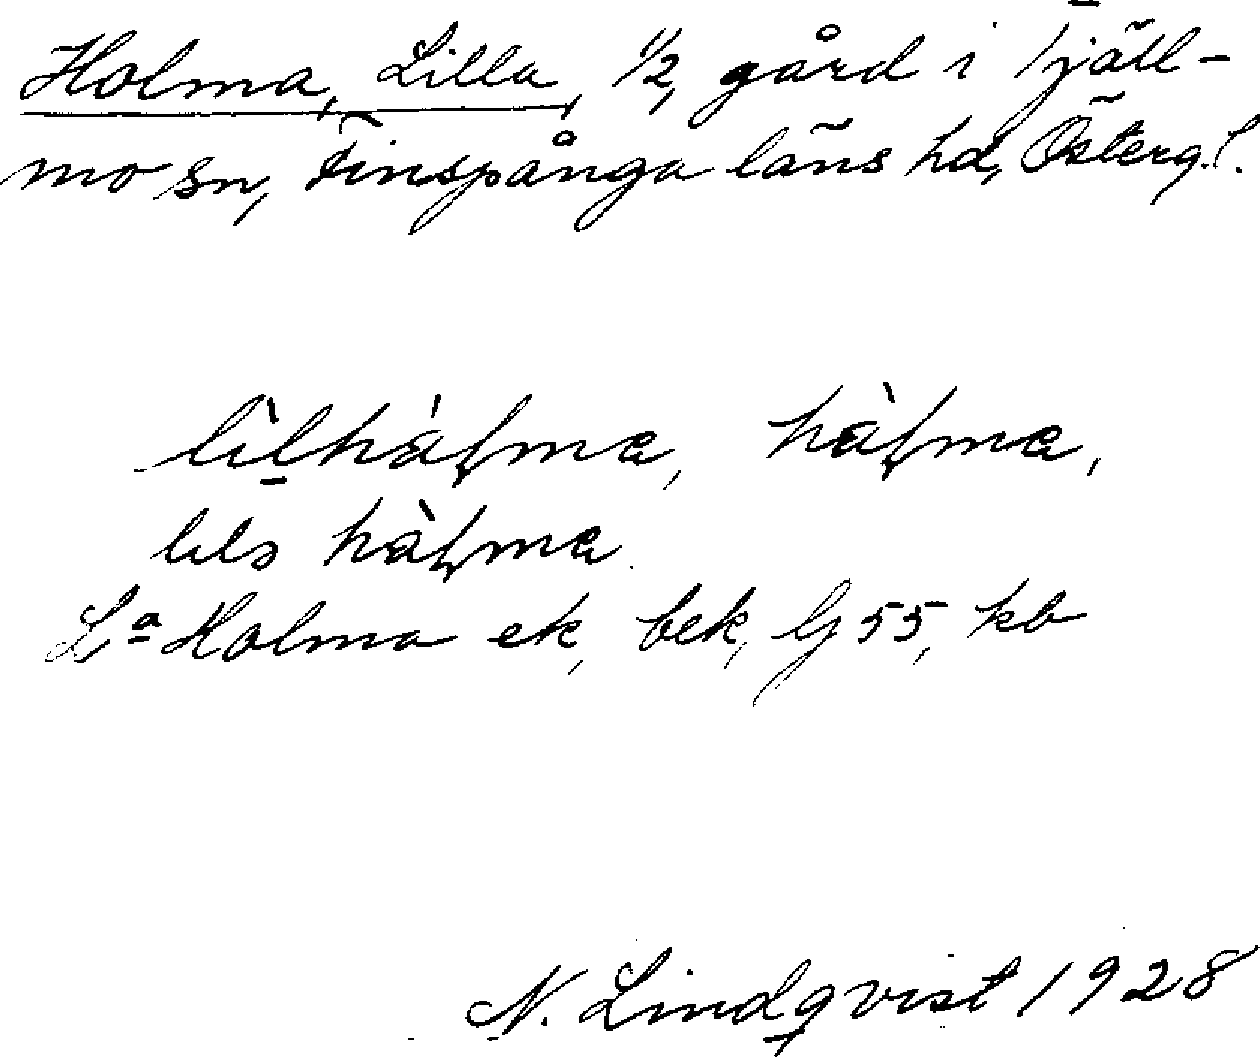 Holma, Lilla, 1/2, gård i Tjäll-
mo sn, Finspånga läns hd, Österg.l.
lìlhól̥ma, hòl̥ma,
lils hòl̥ma
La Holma ek, bek, G 55, kb
N. Lindqvist 1928